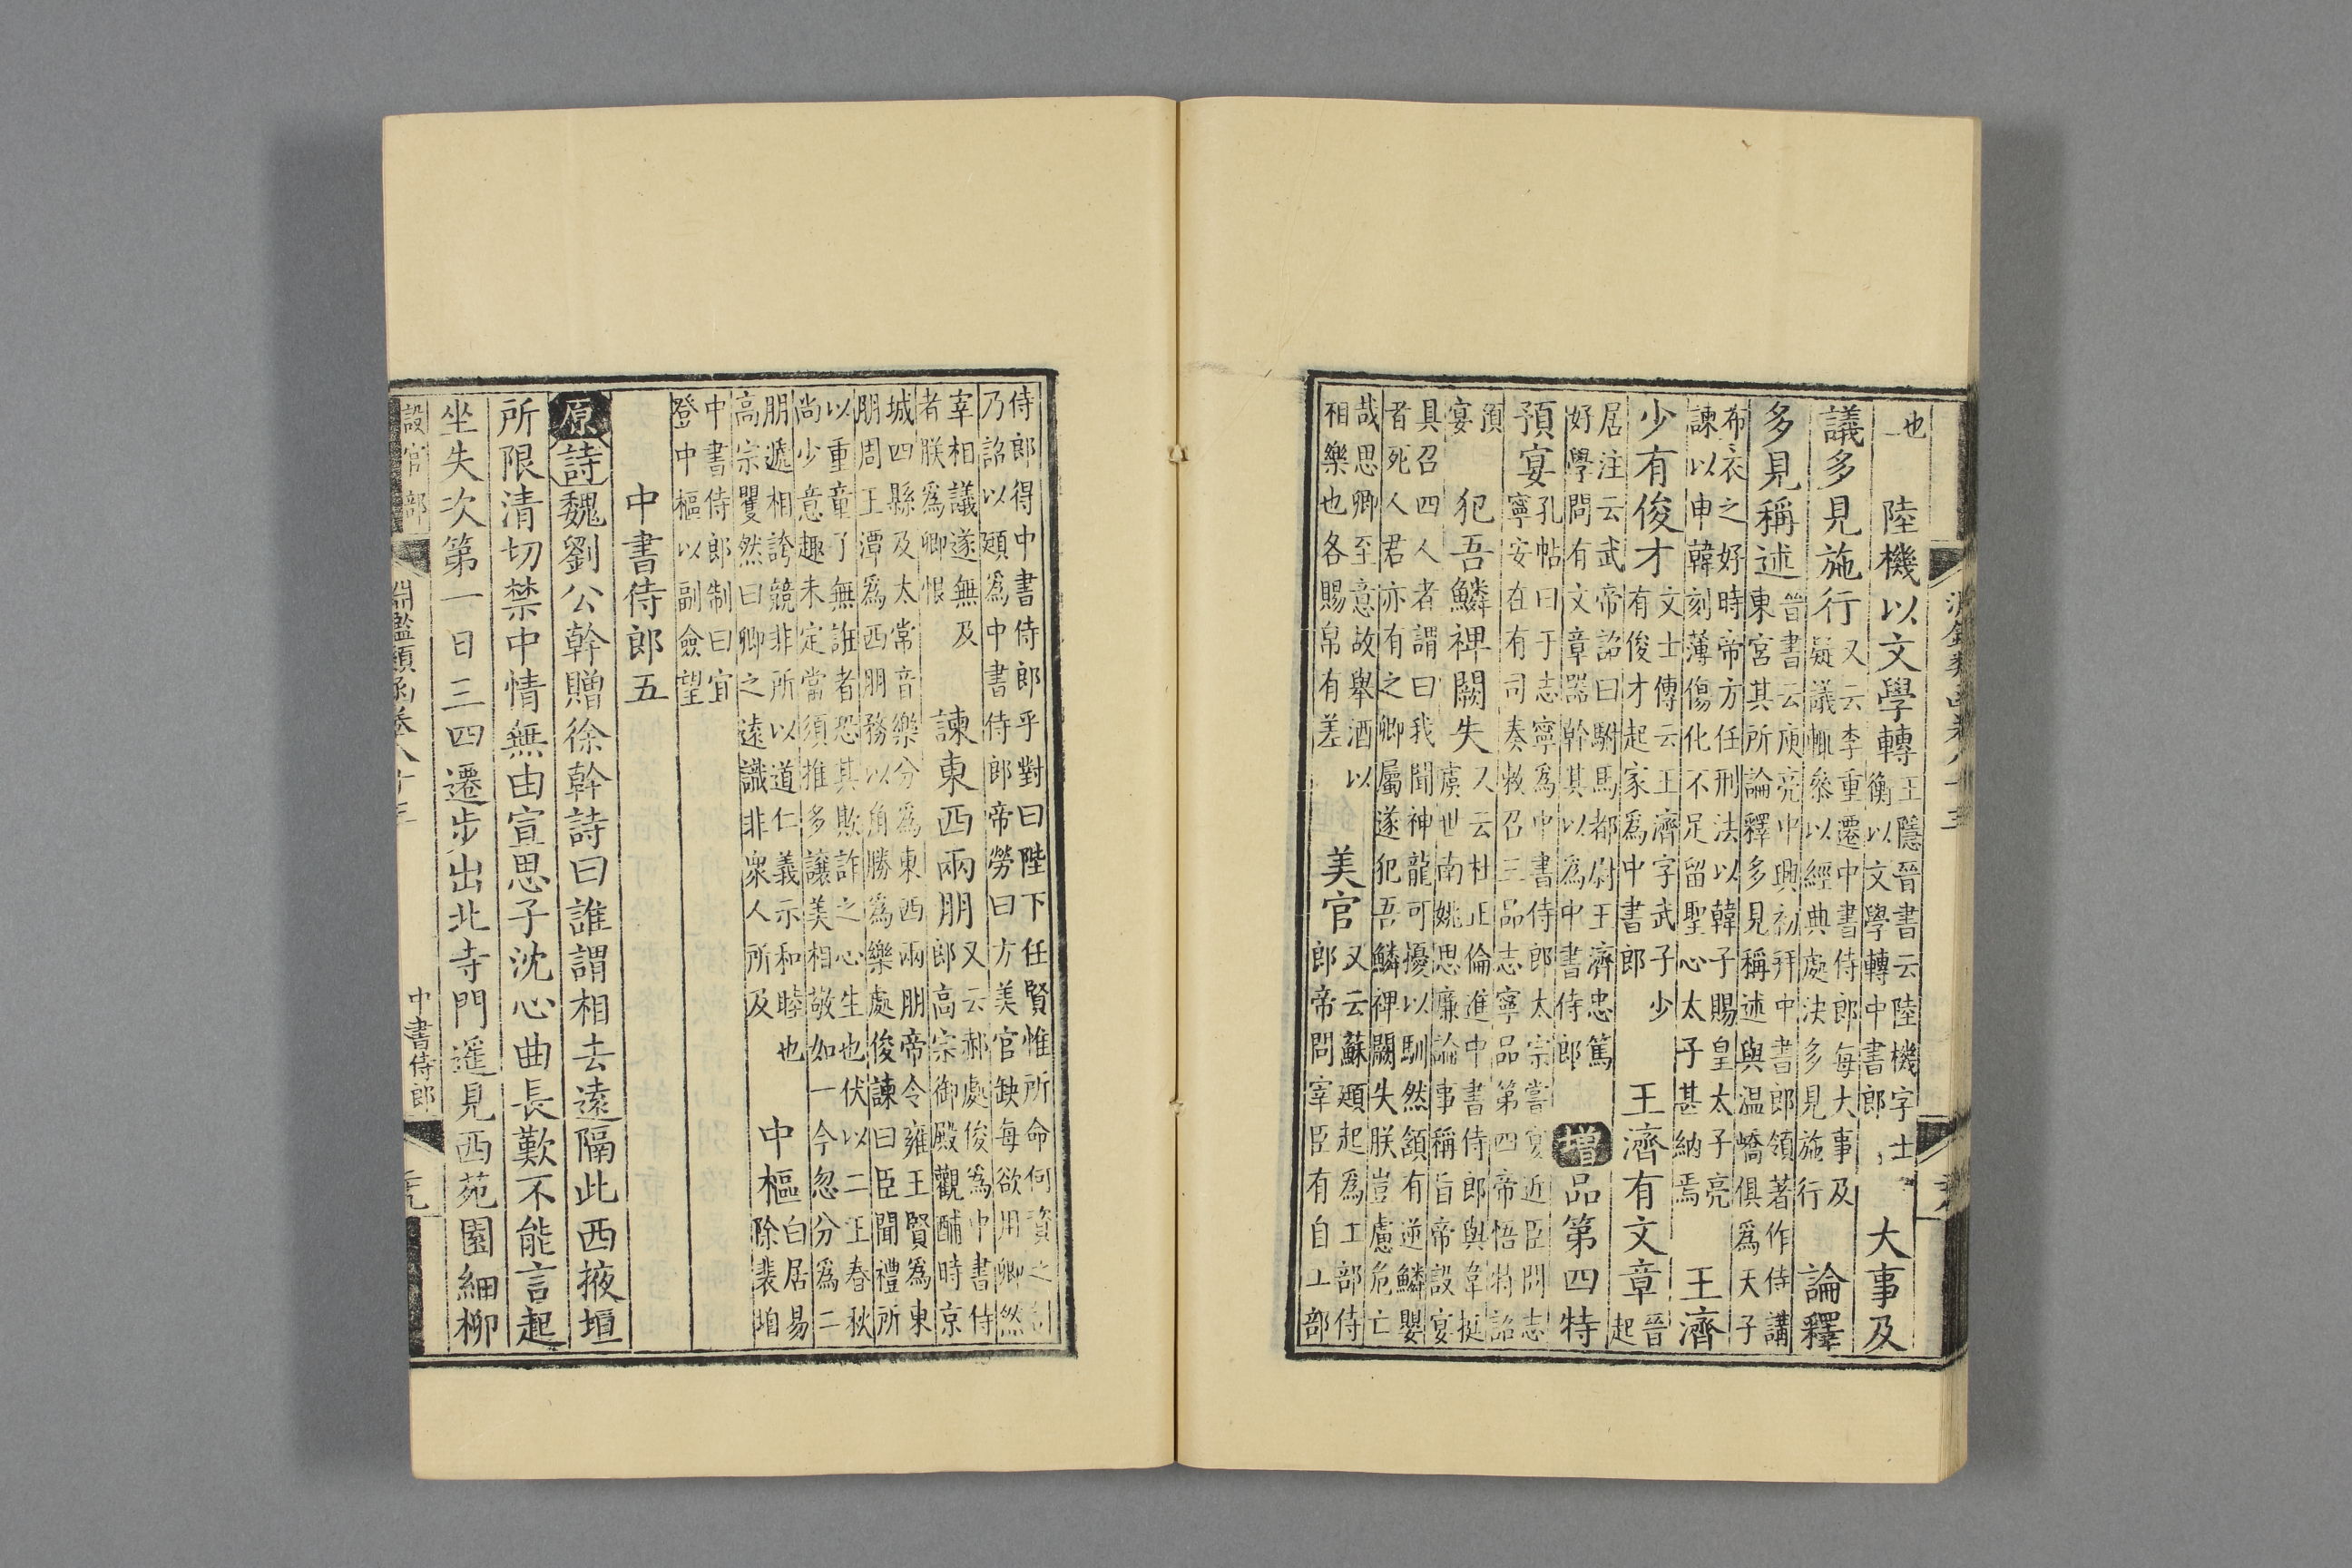 也
陸機以文學轉王隱晉書云陸機字士衡以文學轉中書郎 大事及
議多見施行又云李重遷中書侍郎每大事及疑議輒參以經典處決多見施行 論釋
多見稱述晉書云庾亮中興初拜中書郎領著作侍講東宮其所論釋多見稱述與温嶠俱爲天子
布衣之好時帝方任刑法以韓子賜皇太子亮諫以申韓刻薄傷化不足留聖心太子甚納焉 王濟
少有俊才文士傳云王濟字武子少有俊才起家為中書郎 王濟有文章晉起
居注云武帝詔曰駙馬都尉王濟忠篤好學問有文章器幹其以為中書侍郎 增品第四特
預宴孔帖曰于志寧為中書侍郎太宗嘗宴近臣問志寧安在有司奏敕召三品志寧品第四帝悟特詔
預宴 犯吾鱗裨闕失又云杜正倫進中書侍郎與韋挺虞世南姚思廉論事稱旨帝設宴
具召四人者謂曰我聞神龍可擾以馴然頷有逆鱗嬰者死人君亦有之卿屬遂犯吾鱗裨闕失朕豈慮危亡
哉思卿至意故舉酒以相樂也各賜帛有差 美官又云蘇頲起爲工部侍郎帝問宰臣有自工部
侍郎得中書侍郎乎對曰陛下任賢惟所命何資之計乃詔以頲爲中書侍郎帝勞曰方美官缺每欲用卿然
宰相議遂無及者朕爲卿恨 諫東西兩朋又云郝處俊爲中書侍郎高宗御殿觀酺時京
城四縣及太常音樂分爲東西兩朋帝令雍王賢爲東朋周王潭爲西朋務以角勝爲樂處俊諫曰臣聞禮所
以重童子無誑者恐其欺詐之心生也伏以二王春秋尚少意趣未定當須推多讓美相敬如一今忽分爲二
朋遞相誇競非所以道仁義示和睦也高宗矍然曰卿之遠識非衆人所及 中樞白居易除裴垍
中書侍郎制曰宜登中樞以副僉望
中書侍郎五
原詩魏劉公幹贈徐幹詩曰誰謂相去遠隔此西掖垣
所限清切禁中情無由宣思子沈心曲長歎不能言起
坐失次第一日三四遷步出北寺門遥見西苑園細柳
設官部 淵鑑類函卷八十五 中書侍郎